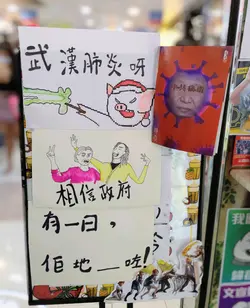 武漢肺炎呀
相信政府
有一日,
佢地__咗!!